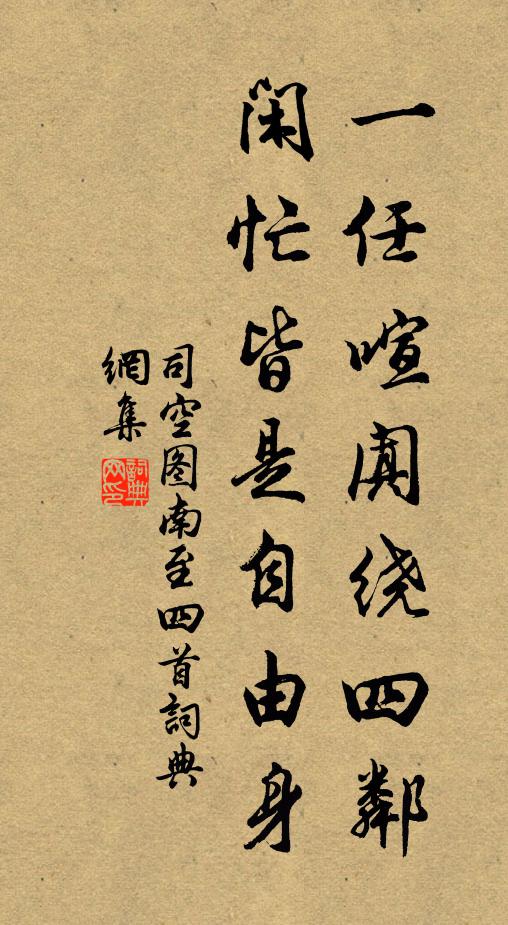 一任喧阗绕四鄰
闲忙皆是自由身
司空图南至四首詞典
網集
詞典
网印